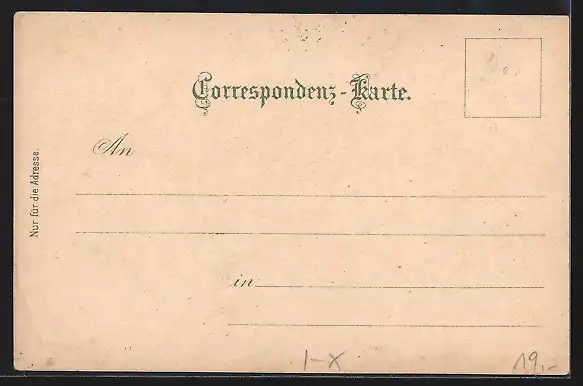 Correspondenz-Karte.
An
Nur für die Adresse.
in
I-X
19,-